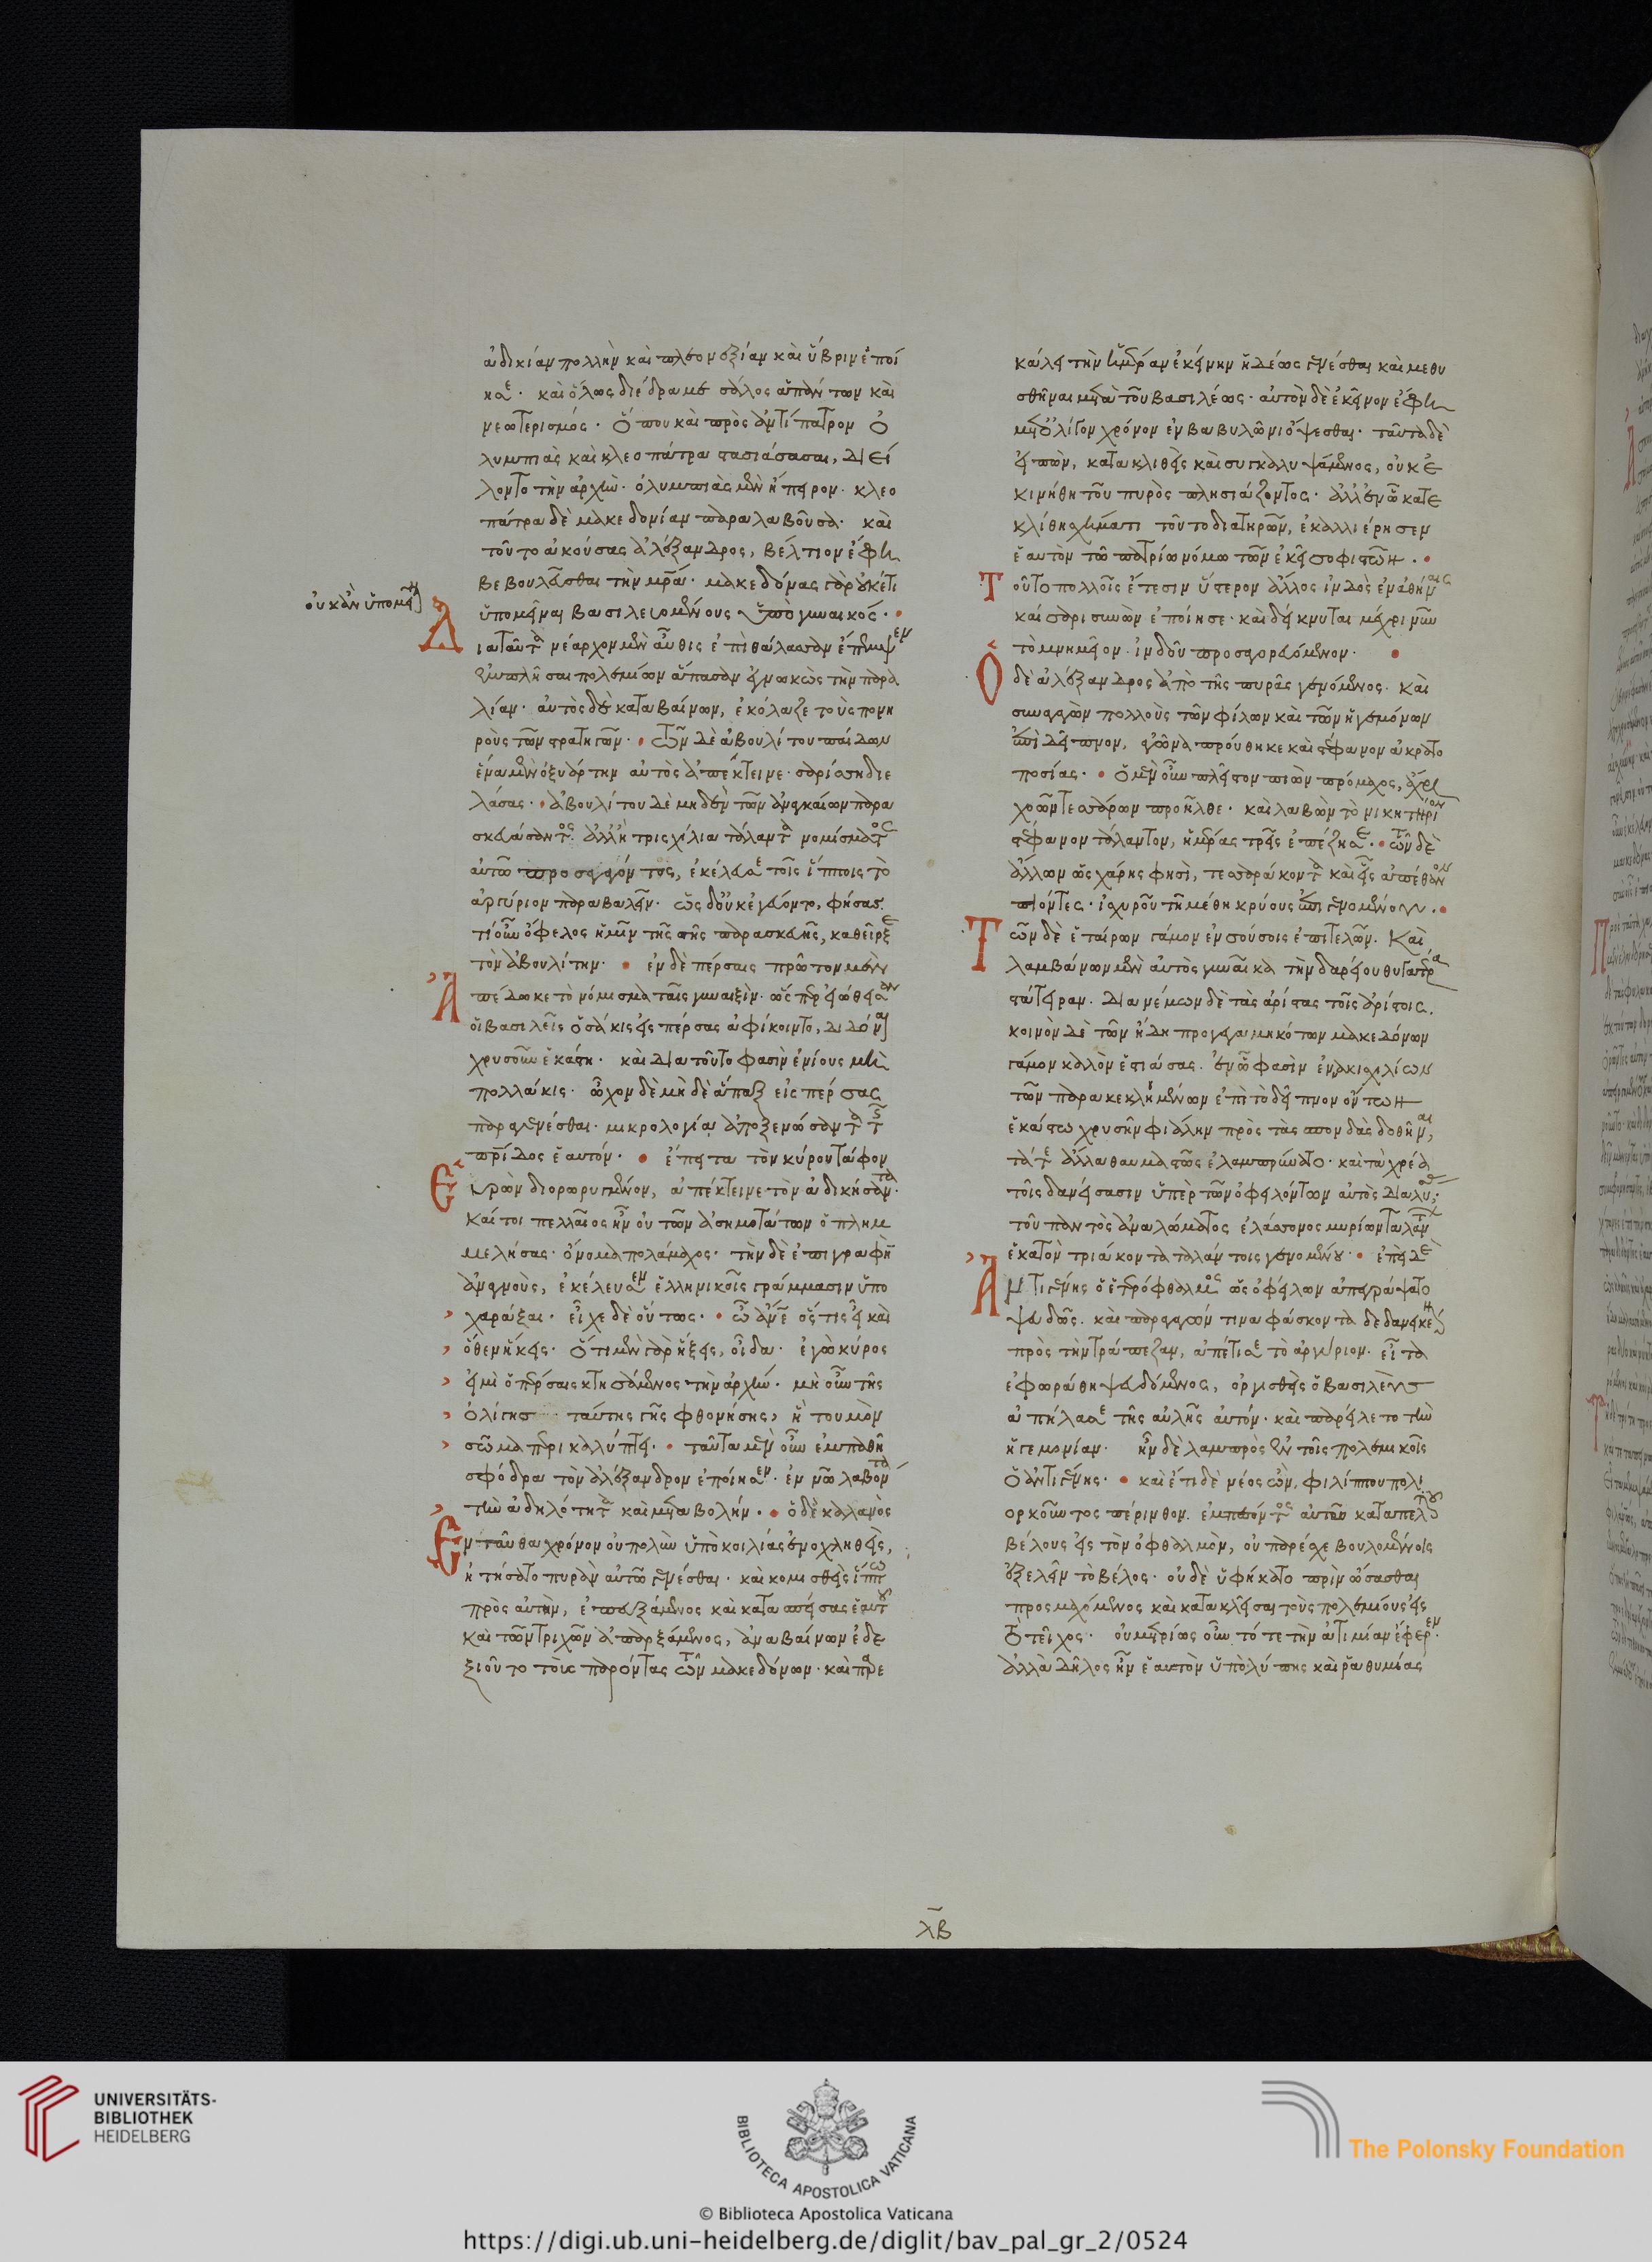 ἀδικίαν πολλὴν καὶ πλεονεξίαν καὶ ὕβριν ἐποί
ησε· καὶ ὅλως διέδραμε σάλος ἁπάντων καὶ
νεωτερισμός· ὅπου καὶ πρὸς ἀντίπατρον ὀ
λυμπιὰς καὶ κλεοπάτρα στασιάσασαι, διεί
λοντο τὴν ἀρχήν· ὀλυμπιὰς μὲν ἤπειρον· κλεο
πάτρα δὲ μακεδονίαν παραλαβοῦσα· καὶ
τοῦτο ἀκούσας ἀλέξανδρος, βέλτιον ἔφη
βεβουλεῦσθαι τὴν μρα· μακεδόνας γὰρ οὐκέτι
οὐκ ἂν ὑπομεῖναι
ὑπομεῖναι βασιλευομένους ὑπὸ γυναικός·
Διὰ ταῦτα νέαρχον μὲν αὖθις ἐπὶ θάλασσαν ἔπεμψεν
ἐμπλῆσαι πολεμίων ἅπασαν ἐγνωκὼς τὴν παρα
λίαν· αὐτὸς δὲ καταβαίνων, ἐκόλαζε τοὺς πονη
ροὺς τῶν στρατηγῶν· τῶν δὲ ἀβουλίτου παίδων
ἕνα μὲν ὀξυάρτην αὐτὸς ἀπέκτεινε σαρίσῃ διε
λάσας· ἀβουλίτου δὲ μηδὲν τῶν ἀναγκαίων παρα
σκευάσαντος· ἀλλ' ἢ τρισχίλια τάλαντα νομίσματος
αὐτῷ προσαγαγόντος, ἐκέλευσε τοῖς ἵπποις τὸ
ἀργύριον παραβαλεῖν· ὡς δ' οὐκ ἐγεύοντο, φήσας
τί οὖν ὄφελος ἡμῖν τῆς σῆς παρασκευῆς, καθεῖρξε
τὸν ἀβουλίτην· ἐν δὲ πέρσαις πρῶτον μὲν
Ἀπέδωκε τὸ νόμισμα ταῖς γυναιξὶν· ὥσπερ εἰώθεσαν
οἱ βασιλεῖς ὁσάκις εἰς πέρσας ἀφίκοιντο, διδόναι
χρυσοῦν ἑκάστη· καὶ διὰ τοῦτο φασὶν ἐνίους μὴ
πολλάκις· ὦχον δὲ μὴ δὲ ἅπαξ εἰς πέρσας
παραγενέσθαι· μικρολογίᾳ ἀποξενώσαντα τῆς
πατρίδος ἑαυτόν· ἔπειτα τὸν κύρου τάφον
Εὑρὼν διορωρυγμένον, ἀπέκτεινε τὸν ἀδικήσαντα·
Καίτοι πελλαῖος ἦν οὐ τῶν ἀσημοτάτων ὁ πλημ
μελήσας· ὄνομα πολάμαχος· τὴν δὲ ἐπιγραφὴν
ἀναγνοὺς, ἐκέλευσεν ἑλληνικοῖς γράμμασιν ὑπο
χαράξαι· εἶχε δὲ οὕτως· ὦ ἄνθρωπε ὅστις εἶ καὶ
ὅθεν ἥκεις· ὅτι μὲν γὰρ ἥξεις, οἶδα· ἐγὼ κύρος
εἰμὶ ὁ πέρσαις κτησάμενος τὴν ἀρχήν· μὴ οὖν τῆς
ὀλίγης ταύτης γῆς φθονήσῃς, ἣ τουμὸν
σῶμα περικαλύπτει· ταῦτα μὲν οὖν ἐμπαθῆ
σφόδρα τὸν ἀλέξανδρον ἐποίησεν· ἐν νῷ λαβόντα
τὴν ἀδηλότητα καὶ μεταβολήν· ὁ δὲ καλανὸς
Ἐνταῦθα χρόνον οὐ πολὺν ὑπὸ κοιλίας ἐνοχληθεὶς,
ἠτήσατο πυρὰν αὐτῷ γενέσθαι· καὶ κομισθεὶς ἵππῳ
πρὸς αὐτὴν, ἐπευξάμενος καὶ κατασπείσας ἑαυτοῦ
καὶ τῶν τριχῶν ἀπαρξάμενος, ἀναβαίνων ἐδε
ξιοῦτο τοὺς παρόντας τῶν μακεδόνων· καὶ παρε
κάλει τὴν ἡμέραν ἐκείνην ἡδέως γενέσθαι καὶ μεθυ
σθῆναι μετὰ τοῦ βασιλέως· αὐτὸν δὲ ἐκεῖνον ἔφη
μετ' ὀλίγον χρόνον ἐν βαβυλῶνι ὄψεσθαι· ταῦτα δὲ
εἰπὼν, κατακλιθεὶς καὶ συγκαλυψάμενος, οὐκ ἐ
κινήθη τοῦ πυρὸς πλησιάζοντος· ἀλλ' ἐν ᾧ κατε
κλίθη σχήματι τοῦτο διατηρῶν, ἐκαλλιέρησεν
ἑαυτὸν τῷ πατρίῳ νόμῳ τῶν ἐκεῖ σοφιστῶν·
Τοῦτο πολλοῖς ἔτεσιν ὕστερον ἄλλος ἰνδὸς ἐν ἀθήναις
καίσαρι συνὼν ἐποίησε· καὶ δείκνυται μέχρι νῦν
τὸ μνημεῖον· ἰνδοῦ προσαγορευόμενον·
Ὁ δὲ ἀλέξανδρος ἀπὸ τῆς πυρᾶς γενόμενος· καὶ
συναγαγὼν πολλοὺς τῶν φίλων καὶ τῶν ἡγεμόνων
ἐπὶ δεῖπνον, ἀγῶνα προύθηκε καὶ στέφανον ἀκρατο
ποσίας· ὁ μὲν οὖν πλεῖστον πιὼν πρόμαχος, ἄχρι
χοῶν τεσσάρων προῆλθε· καὶ λαβὼν τὸ νικητήριον
στέφανον τάλαντον, ἡμέρας τρεῖς ἐπέζησε· τῶν δὲ
ἄλλων ὡς χάρης φησὶ, τεσσαράκοντα καὶ εἷς ἀπέθανον
πιόντες· ἰσχυροῦ τῇ μέθῃ κρύους ἐπιγενομένου·
Τῶν δὲ ἑταίρων γάμον ἐν σούσοις ἐπιτελῶν· Καὶ
λαμβάνων μὲν αὐτὸς γυναῖκα τὴν δαρείου θυγατέρα
στάτειραν· Διανέμων δὲ τὰς ἀρίστας τοῖς ἀρίστοις·
κοινὸν δὲ τῶν ἤδη προγεγαμηκότων μακεδόνων
γάμον καλὸν ἑστιάσας· ἐν ᾧ φασὶν ἐνακισχιλίων
τῶν παρακεκλημένων ἐπὶ τὸ δεῖπνον ὄντων
ἑκάστῳ χρυσῆν φιάλην πρὸς τὰς σπονδὰς δοθῆναι,
τά τε ἄλλα θαυμαστῶς ἐλαμπρύνατο· καὶ τὰ χρέα
τοῖς δανείσασιν ὑπὲρ τῶν ὀφειλόντων αὐτὸς διαλύσας·
τοῦ παντὸς ἀναλώματος ἐλάσσονος μυρίων ταλάντων
ἑκατὸν τριάκοντα ταλάντοις γενομένου· ἐπεὶ δὲ
Ἀντιγένης ὁ ἑτερόφθαλμος ὡς ὀφείλων ἀπεγράψατο
ψευδῶς· καὶ παραγαγών τινα φάσκοντα δεδανεικέναι
πρὸς τὴν τράπεζαν, ἀπέτισε τὸ ἀργύριον· εἶτα
ἐφωράθη ψευδόμενος, ὀργισθεὶς ὁ βασιλεὺς
ἀπήλασε τῆς αὐλῆς αὐτόν· καὶ παρείλετο τὴν
ἡγεμονίαν· ἦν δὲ λαμπρὸς ἐν τοῖς πολεμικοῖς
ὁ ἀντιγένης· καὶ ἔτι δὲ νέος ὢν, φιλίππου πολι
ορκοῦντος πέρινθον· ἐμπεσόντος αὐτῷ καταπελτικοῦ
βέλους εἰς τὸν ὀφθαλμὸν, οὐ παρέσχε βουλομένοις
ἐξελεῖν τὸ βέλος· οὐδὲ ὑφήκατο πρὶν ὤσασθαι
προσμαχόμενος καὶ κατακλεῖσαι τοὺς πολεμίους εἰς
τὸ τεῖχος· οὐ μετρίως οὖν τότε τὴν ἀτιμίαν ἔφερεν·
ἀλλὰ δῆλος ἦν ἑαυτὸν ὑπὸ λύπης καὶ ῥᾳθυμίας
λβ
UNIVERSITÄTS-
BIBLIOTHEK
HEIDELBERG
BIBLIOTECA APOSTOLICA VATICANA
The Polonsky Foundation
© Biblioteca Apostolica Vaticana
https://digi.ub.uni-heidelberg.de/diglit/bav_pal_gr_2/0524